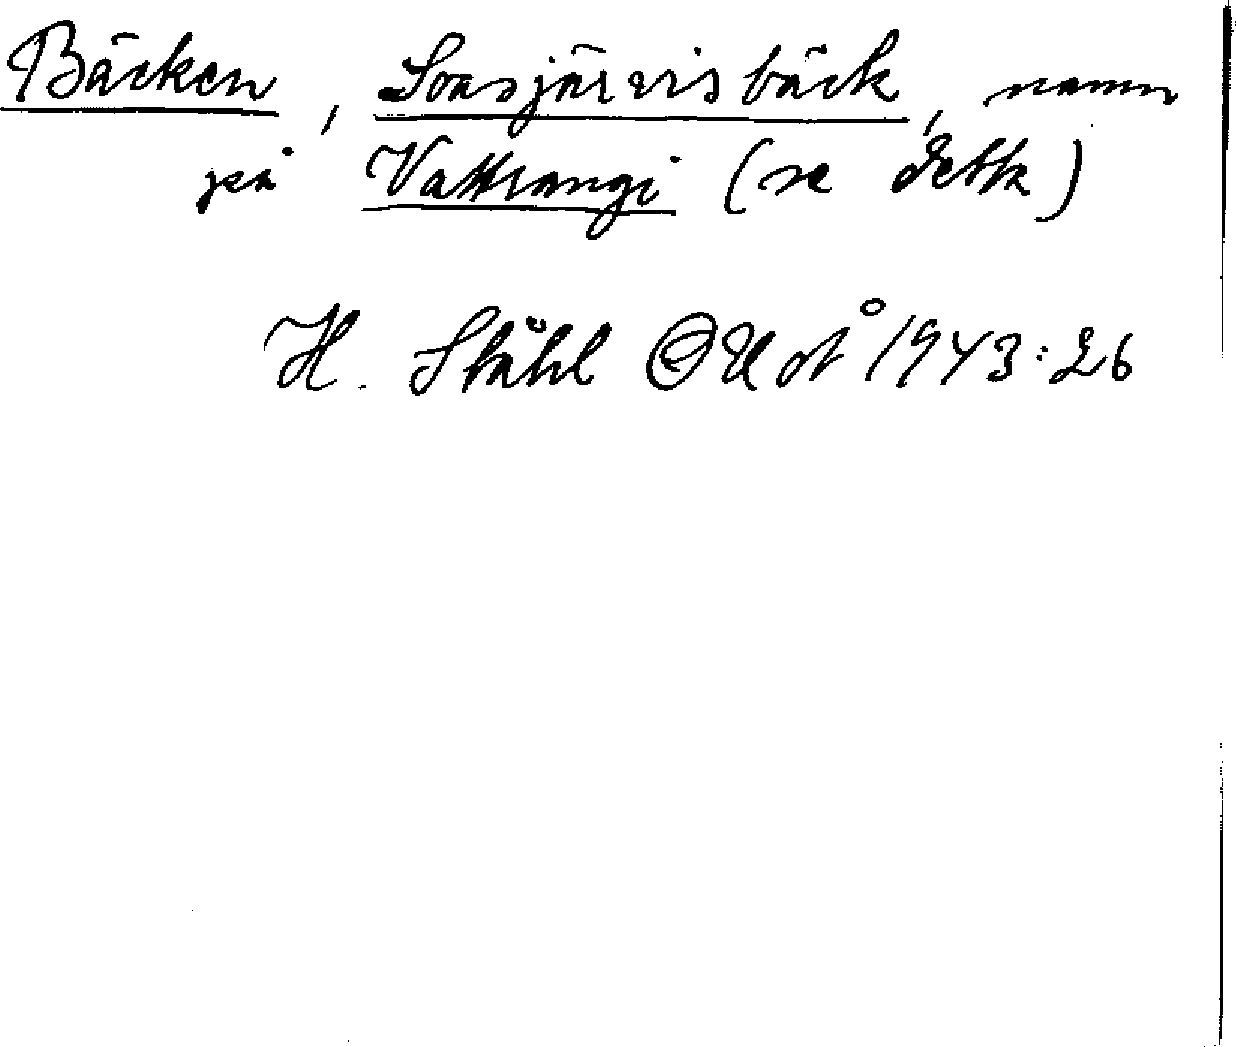 Bäcken, Soasjärvisbäck, namn
på Vattrangi (se detta)
H. Ståhl OUoÅ 1943:26